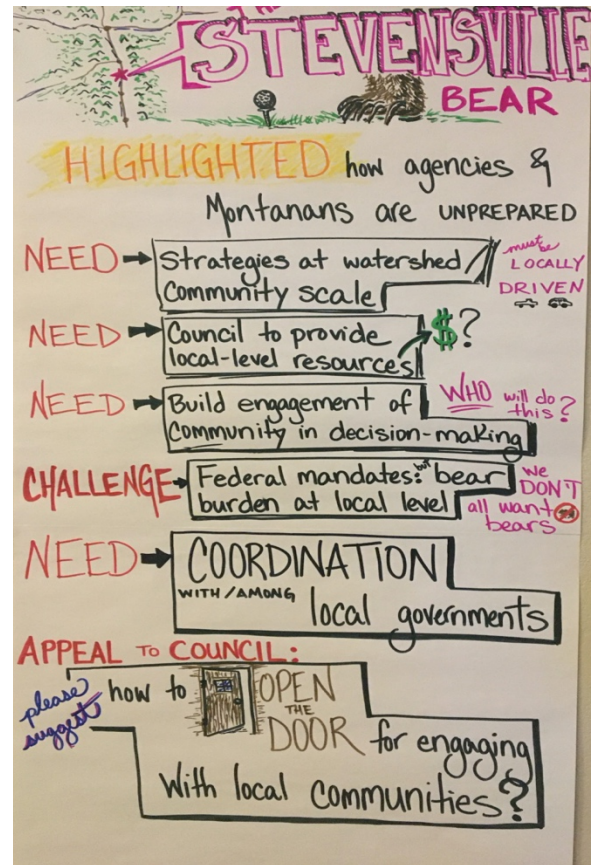 STEVENSVILLE
BEAR
HIGHLIGHTED how agencies &
Montanans are UNPREPARED
NEED → Strategies at watershed/
Community scale
must be
LOCALLY
DRIVEN
NEED → Council to provide
local-level resources
$?
NEED → Build engagement of
Community in decision-making
WHO will do
this?
CHALLENGE → Federal mandates: but bear
burden at local level
we
DON'T
all want
bears
NEED → COORDINATION
WITH/AMONG local governments
APPEAL TO COUNCIL:
please
suggest
how to OPEN
THE
DOOR for engaging
With local communities?